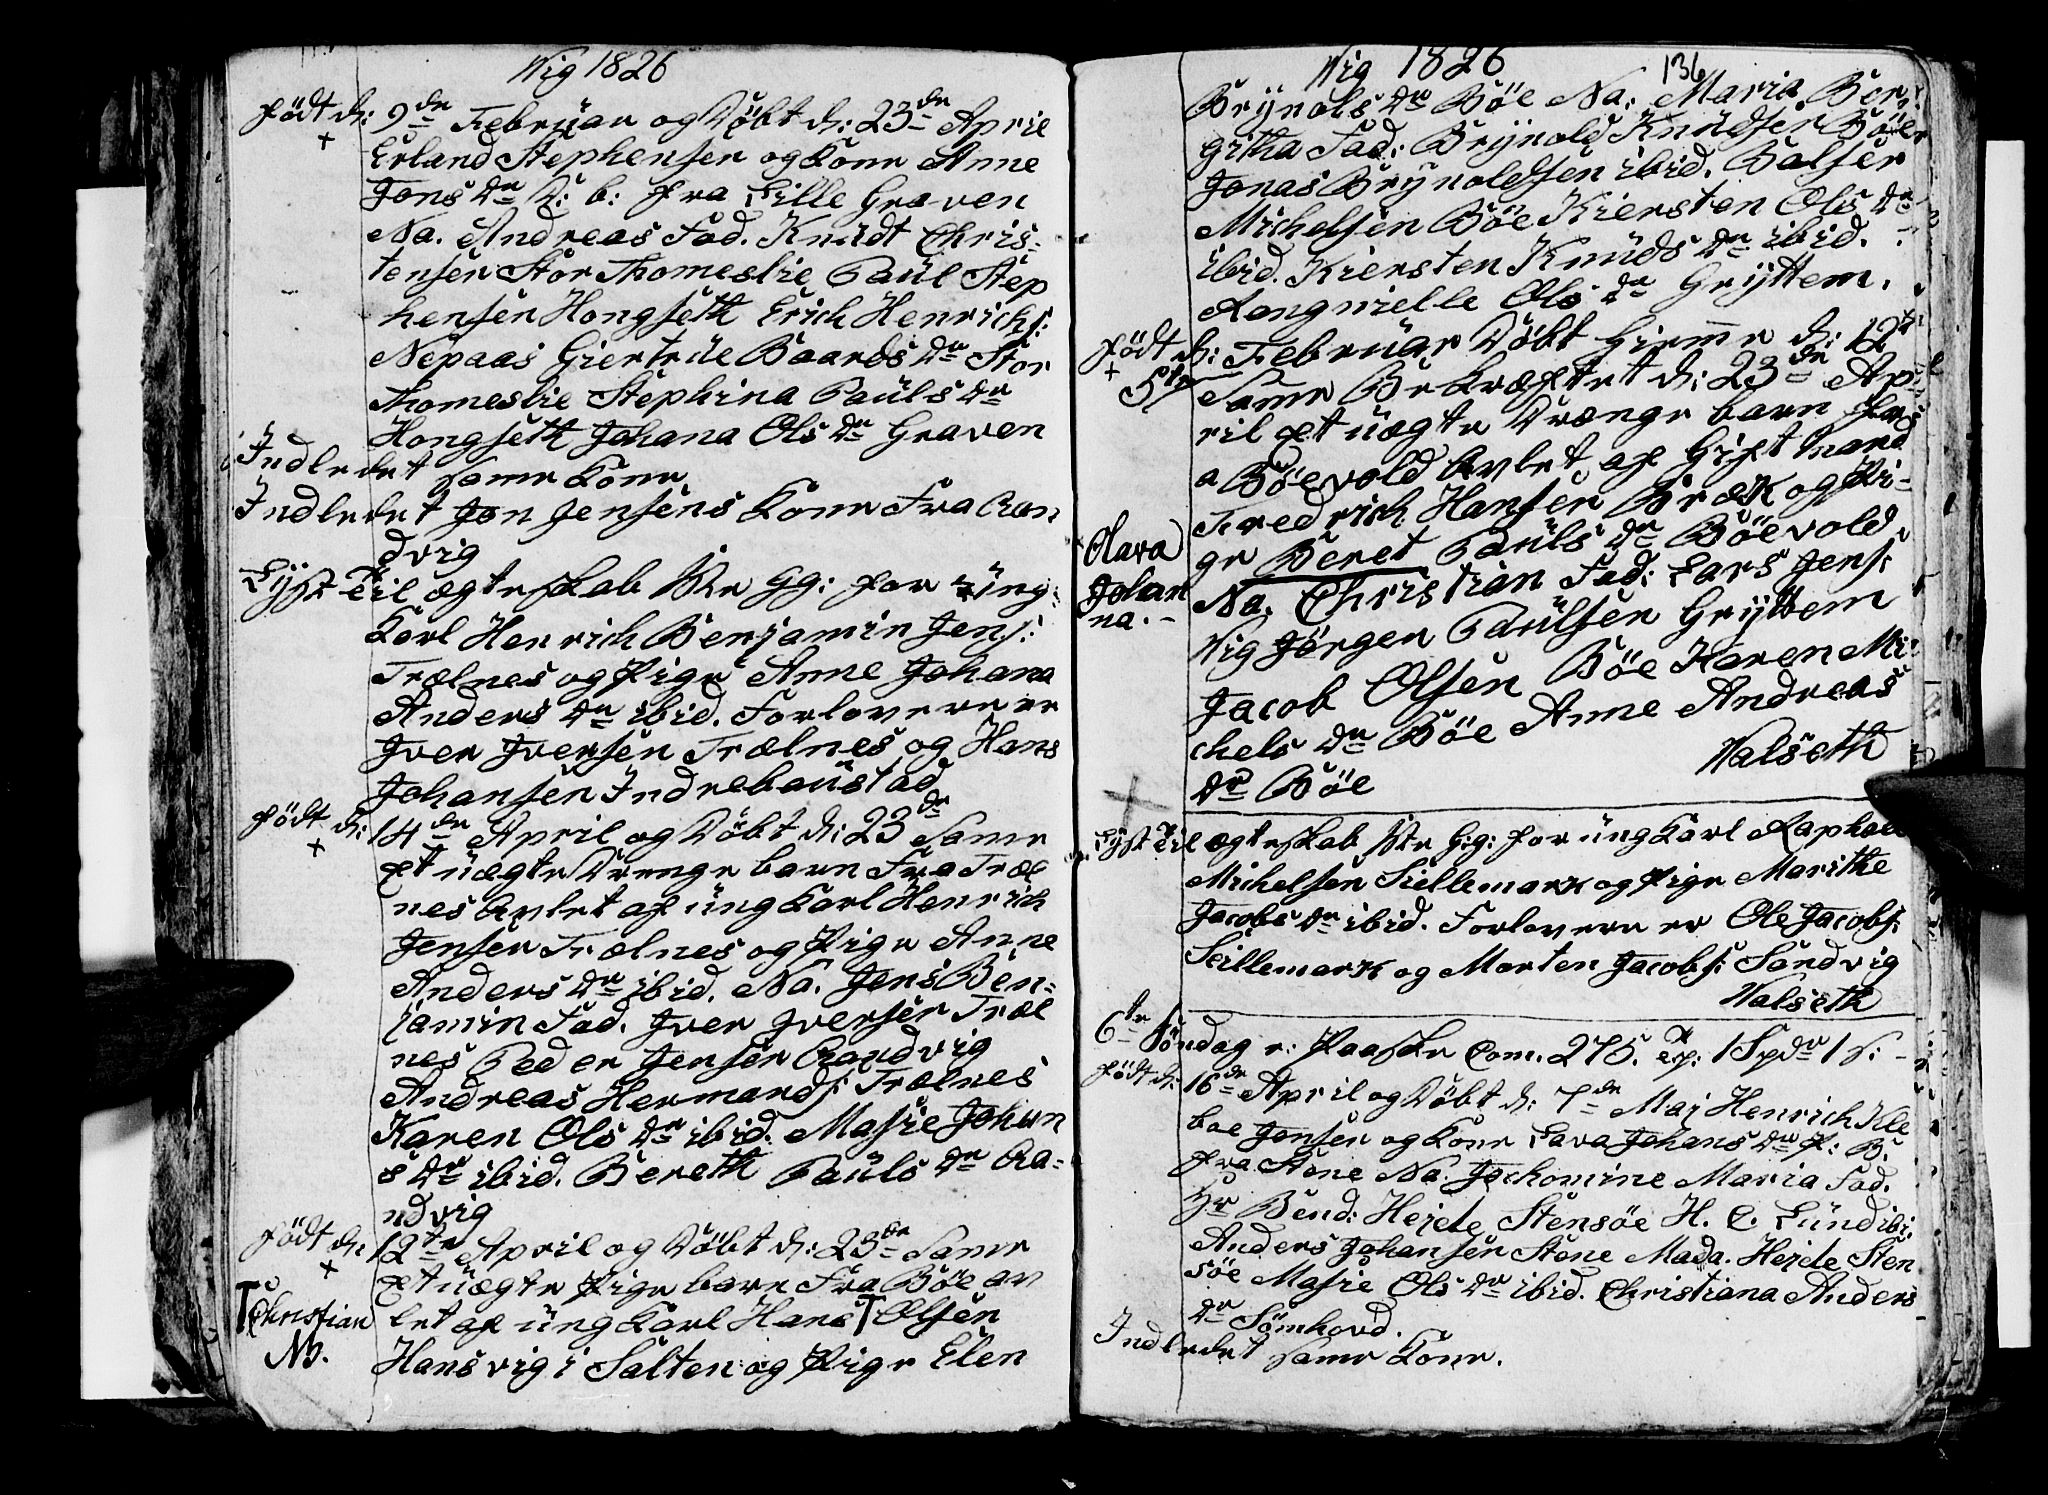 Wig 1826
født d: 9de Februar og Døbt d: 23de April
+
Erland Stephensen og Kone Anne
Jons Dr P: b: fra Lille Graven
Na. Andreas Fad. Knudt Chris-
tensen Stor Thomeslie Paul Step
hensen Hongseth Erich Henrichs:
Nepaas Giertrue Baards Dr Stor
Thomeslie Stephina Pauls Dr
Hongseth Johana Ols Dr Graven
Indledet same Kone
Indledet Jon Jensens Kone Fra Ran
dvig
Lyst Til ægteskab 3die Gg: for ung-
karl Henrich Benjamin Jens:
Trælnes og Pige Anne Johana
Anders Dr ibid. Forlovere er
Jver Jversen Trælnes og Hans
Johansen Indrebaustad
født d: 14de April og Døbt d: 23de Same
+
et uægte Drenge barn Fra Træl
nes Avlet af ung karl Henrich
Jensen Trælnes og Pige Anne
Anders Dr ibid. Na. Jens Ben-
jamin Fad. Jver Jversen Træl
nes Peder Jensen Randvig
Andreas Hermands: Trælnes
Karen Ols Dr ibid. Masie Johan
s Dr ibid. Bereth Pauls Dr Ra-
ndvig
født d: 12te April og Døbt d: 23de Same
+
et uægte Pige barn Fra Böe av
Christian
let af ung karl Hans Olsen
NB.
Hansvig i Salten og Pige Elen
Wig 1826
136
Brynols Dr Böe Na: Maria Ber-
githa Fad: Brynold Knudsen Böe
Jonas Brynoldsen ibid. Balser
Michelsen Böe Kiersten Ols Dr
ibid. Kiersten Knuds Dr ibid.
Rangnielle Ols Dr Gryttem.
født d: Februar Døbt Hieme d: 12te
+
5te
Same Bekræftet d: 23de Ap-
ril et uægte Drænge barn fra
a Böevold Avlet af Gift Mand
Fredrich Hansen Bræk og Pi-
ge Beret Pauls Dr Böevold
Olava
Johan
na.-
Na. Christian Fad: Lars Jens:
Wig Jörgen Paulsen Gryttem
Jacob Olsen Böe Karen Mi-
chels Dr Böe Anne Andreas
Dr Böe
Walseth
Lyst Til ægteskab 3die Gg: for ung karl Raphael
Michelsen Siellemark og Pige Marithe
Jacobs Dr ibid. Forlovere er Ole Jacobs:
Seillemark og Morten Jacobs: Sandvig
Walseth
6te Söndag e: Paaske Com. 275. 1 Spdr 1 s:
født d: 16de April og Døbt d: 7de Maj Henrich Kle
boe Jensen og Kone Lava Johans Dr P: B.
fra Stene Na. Jochomine Maria Fad.
Hr Bend: Hejde Stensöe H. C. Lund ibi
Anders Johansen Stene Mada. Hejde Sten
söe Masie Ols Dr ibid. Christiana Anders
Dr Sömhovd.
Indledet same Kone.